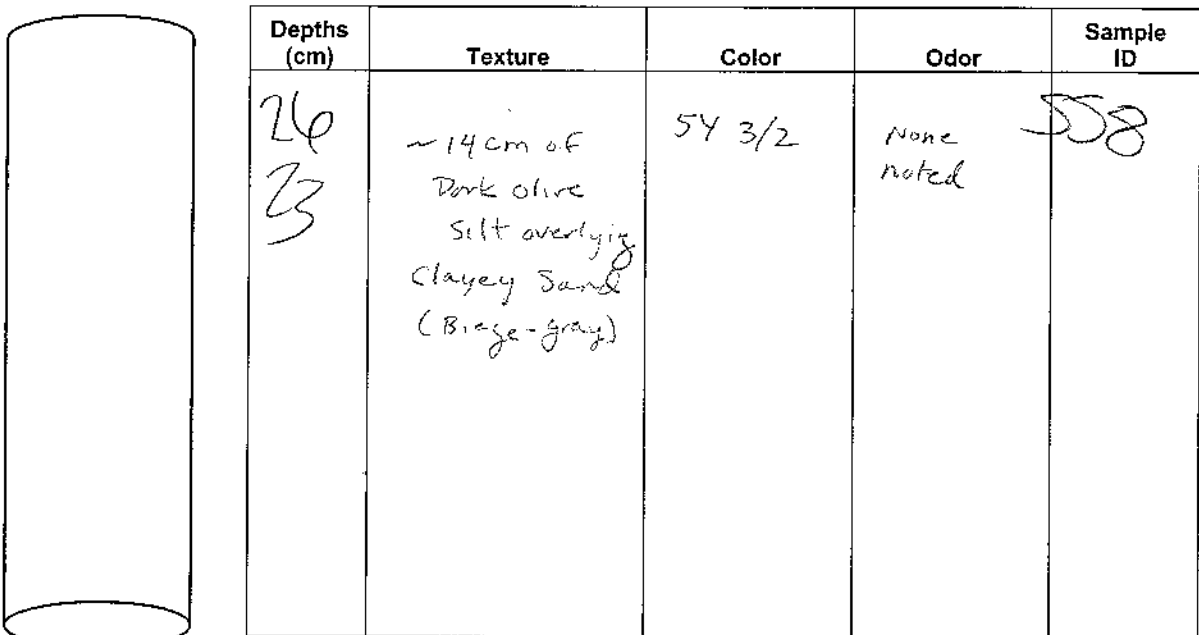 Depths (cm) Texture Color Odor Sample ID
26
23
~14 cm of
Dark olive
Silt overlying
Clayey Sand
(Biege-gray)
5Y 3/2
None
noted
558